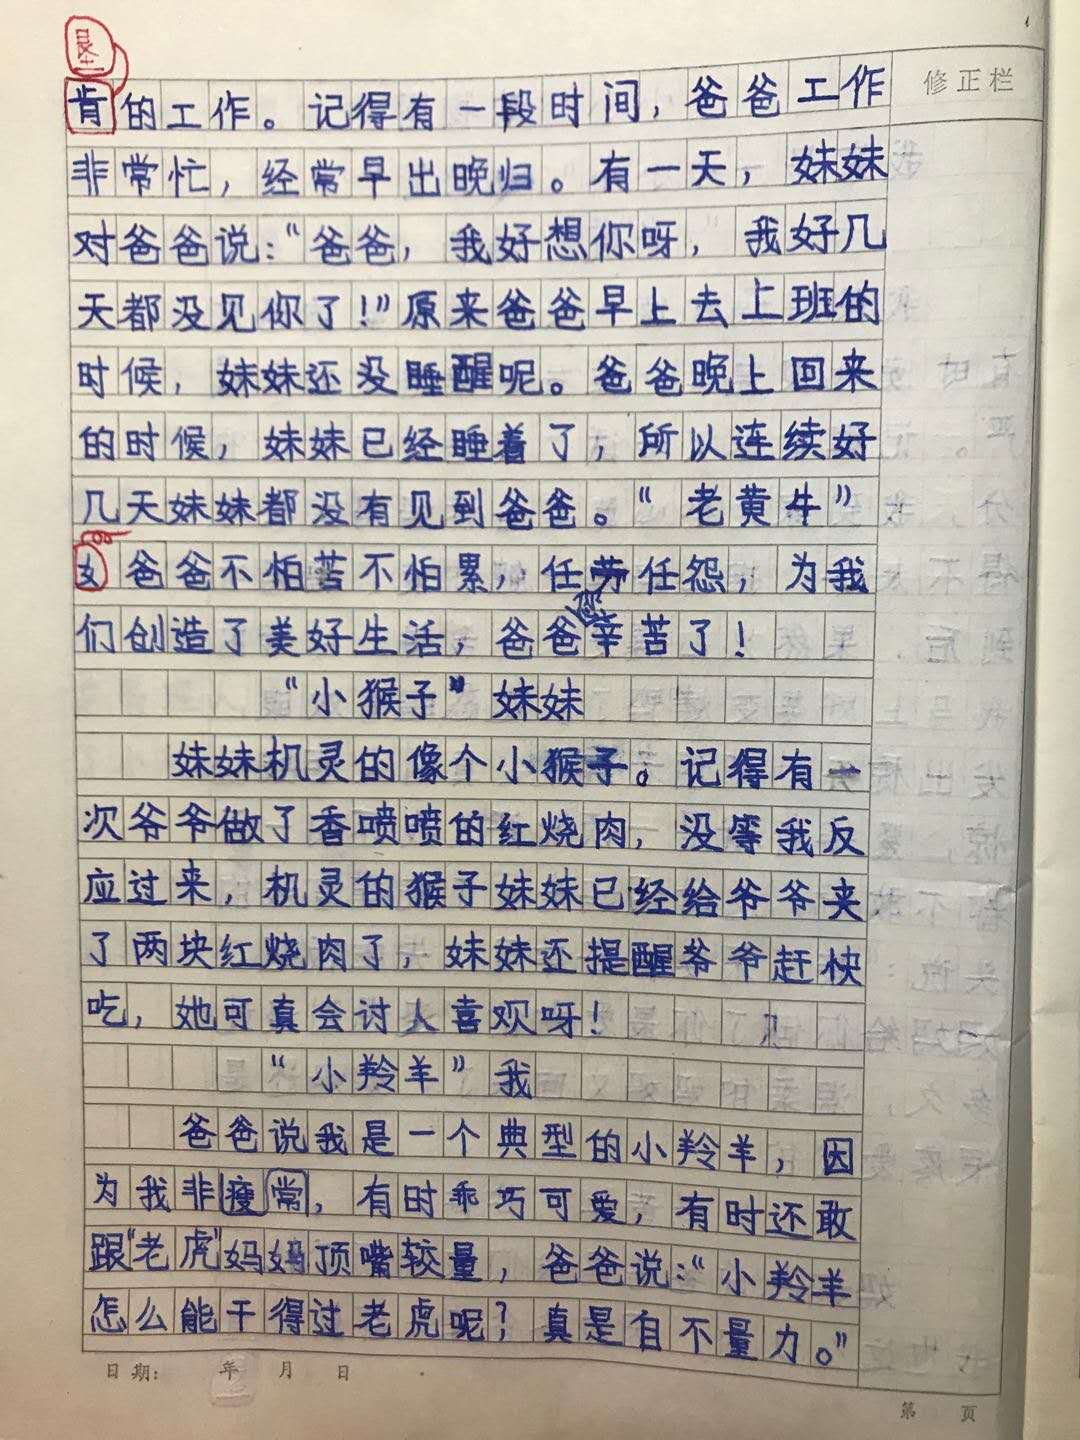 垦
肯的工作。记得有一段时间，爸爸工作
修正栏
非常忙，经常早出晚归。有一天，妹妹
对爸爸说：“爸爸，我好想你呀，我好几
天都没见你了！”原来爸爸早上去上班的
时候，妹妹还没睡醒呢。爸爸晚上回来
的时候，妹妹已经睡着了，所以连续好
几天妹妹都没有见到爸爸。“老黄牛”
爸爸不怕苦不怕累，任劳任怨，为我
们创造了美好生活，爸爸您辛苦了！
“小猴子”妹妹
妹妹机灵的像个小猴子。记得有一
次爷爷做了香喷喷的红烧肉，没等我反
应过来，机灵的猴子妹妹已经给爷爷夹
了两块红烧肉了，妹妹还提醒爷爷赶快
吃，她可真会讨人喜观呀！
“小羚羊”我
爸爸说我是一个典型的小羚羊，因
为我非瘦常，有时乖巧可爱，有时还敢
跟“老虎”妈妈顶嘴较量，爸爸说：“小羚羊
怎么能干得过老虎呢？真是自不量力。”
日期： 年 月 日
第 页